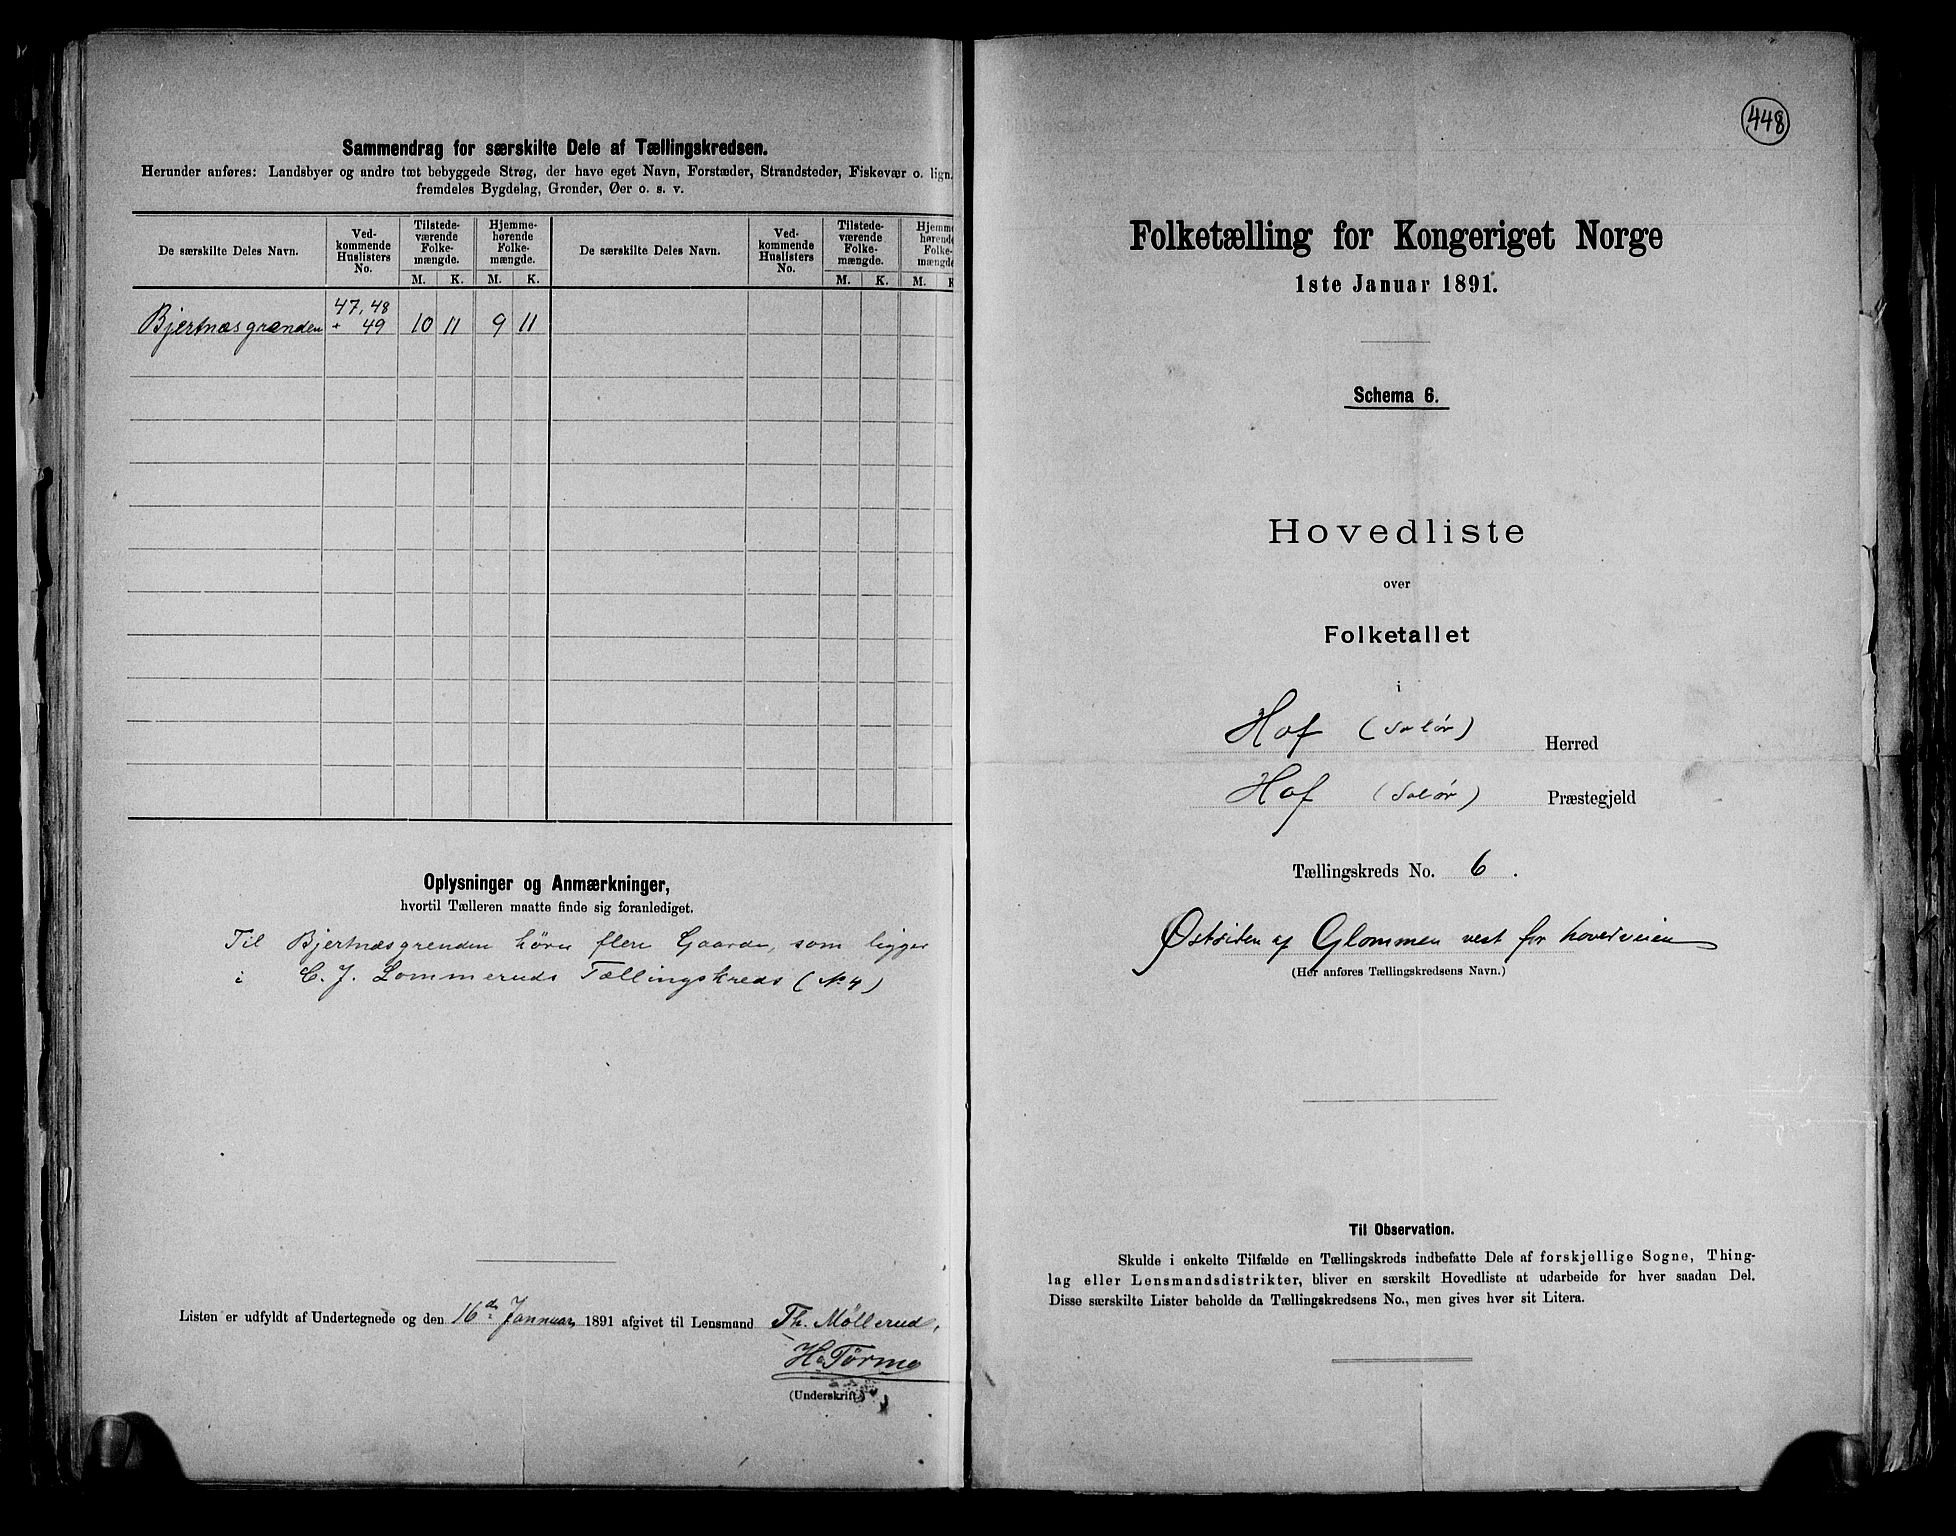 Sammendrag for særskilte Dele af Tællingskredsen.
Herunder anføres: Landsbyer og andre tæt bebyggede Strøg, der have eget Navn, Forstæder, Strandsteder, Fiskevær o. lign.
fremdeles Bygdelag, Grender, Øer o. s. v.
De særskilte Deles Navn.
Ved-
kommende
Huslisters
No.
Tilstede-
værende
Folke-
mængde.
M. K.
Hjemme-
hørende
Folke-
mængde.
M. K.
De særskilte Deles Navn.
Ved-
kommende
Huslisters
No.
Tilstede-
værende
Folke-
mængde.
M. K.
Hjemme
hørende
Folke-
mængde
M. K
47, 48
Bjertnæsgrænden + 49 10 11 9 11
Oplysninger og Anmærkninger,
hvortil Tælleren maatte finde sig foranlediget.
Til Bjertnæsgrenden hører flere Gaarde, som ligger
i C. J. Lommeruds Tællingskreds (No 4)
Listen er udfyldt af Undertegnede og den 16de Januar 1891 afgivet til Lensmand Th. Møllerud,
H. Tørmo
(Underskrift)
448
Folketælling for Kongeriget Norge
1ste Januar 1891.
Schema 6.
Hovedliste
over
Folketallet
i
Hof (Solør) Herred
Hof (Solør) Præstegjeld
Tællingskreds No. 6.
Østsiden af Glommen vest for hovedveien
(Her anføres Tællingskredsens Navn.)
Til Observation.
Skulde i enkelte Tilfælde en Tællingskreds indbefatte Dele af forskjellige Sogne, Thing-
lag eller Lensmandsdistrikter, bliver en særskilt Hovedliste at udarbeide for hver saadan Del.
Disse særskilte Lister beholde da Tællingskredsens No., men gives hver sit Litera.